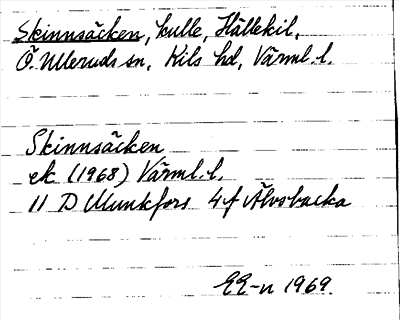 Skinnsäcken, kulle, Hällekil,
Ö. Ulleruds sn, Kils hd, Värml. l.
Skinnsäcken
ek (1968) Värml. l.
11 D Munkfors 4f Älvsbacka
EE-n 1969.